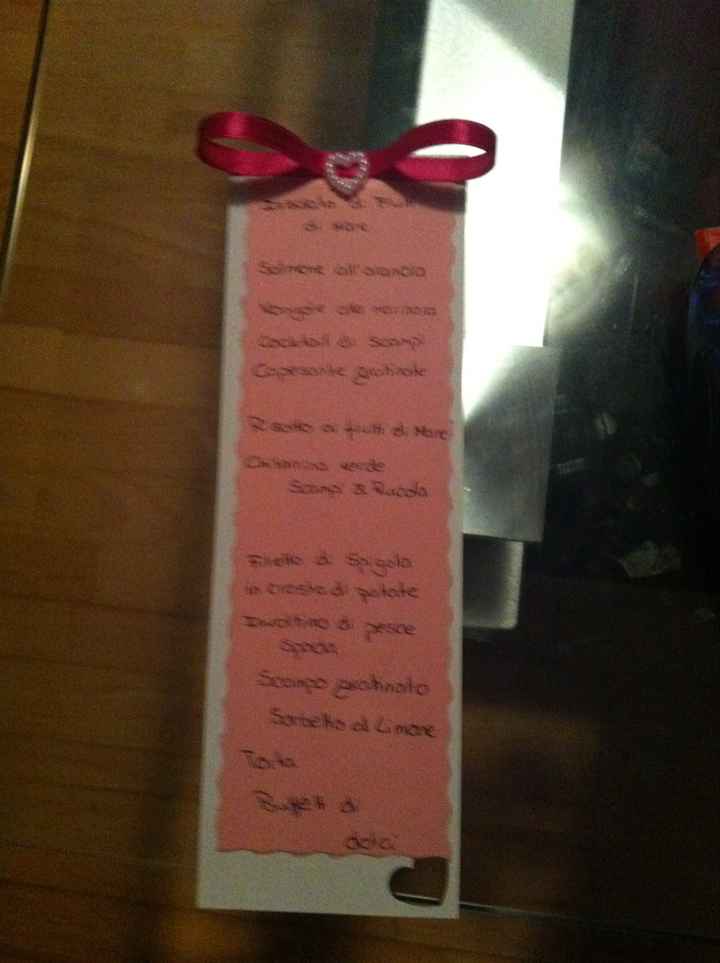 Insalata di Frutti
di Mare
Salmone all'arancia
Vongole alla marinara
Cocktail di Scampi
Capesante gratinate
Risotto ai frutti di Mare
verde
Scampi & Rucola
Filetto di Spigola
in crosta di patate
Involtino di pesce
spada
Scampo gratinato
Sorbetto al Limone
Torta
Buffett di
dolci